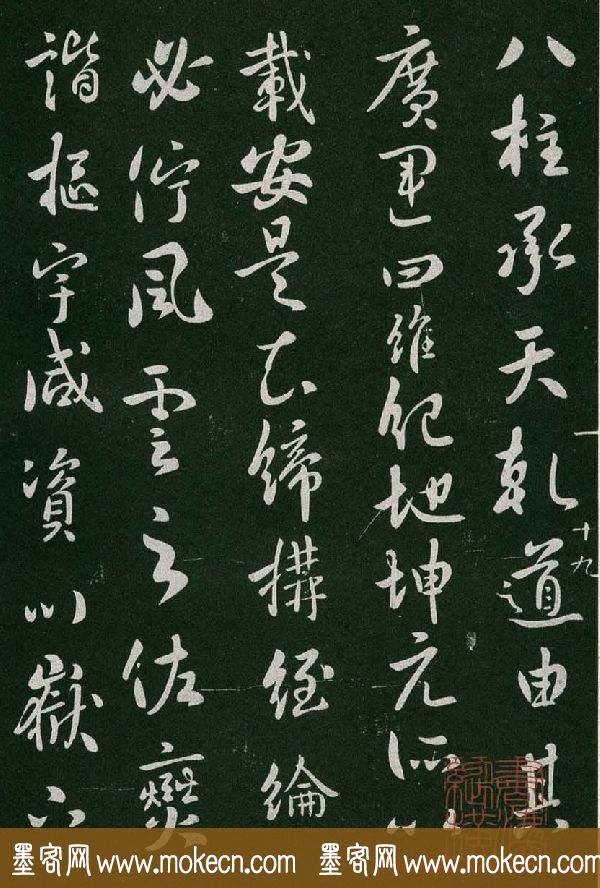 八柱承天乾道由其
廣運四維紀地坤元所
載安是知締構經綸
必佇風雲之佐燮
諧樞宇咸資川嶽
十九
墨客网 www.mokecn.com 墨客网 www.mokecn.com